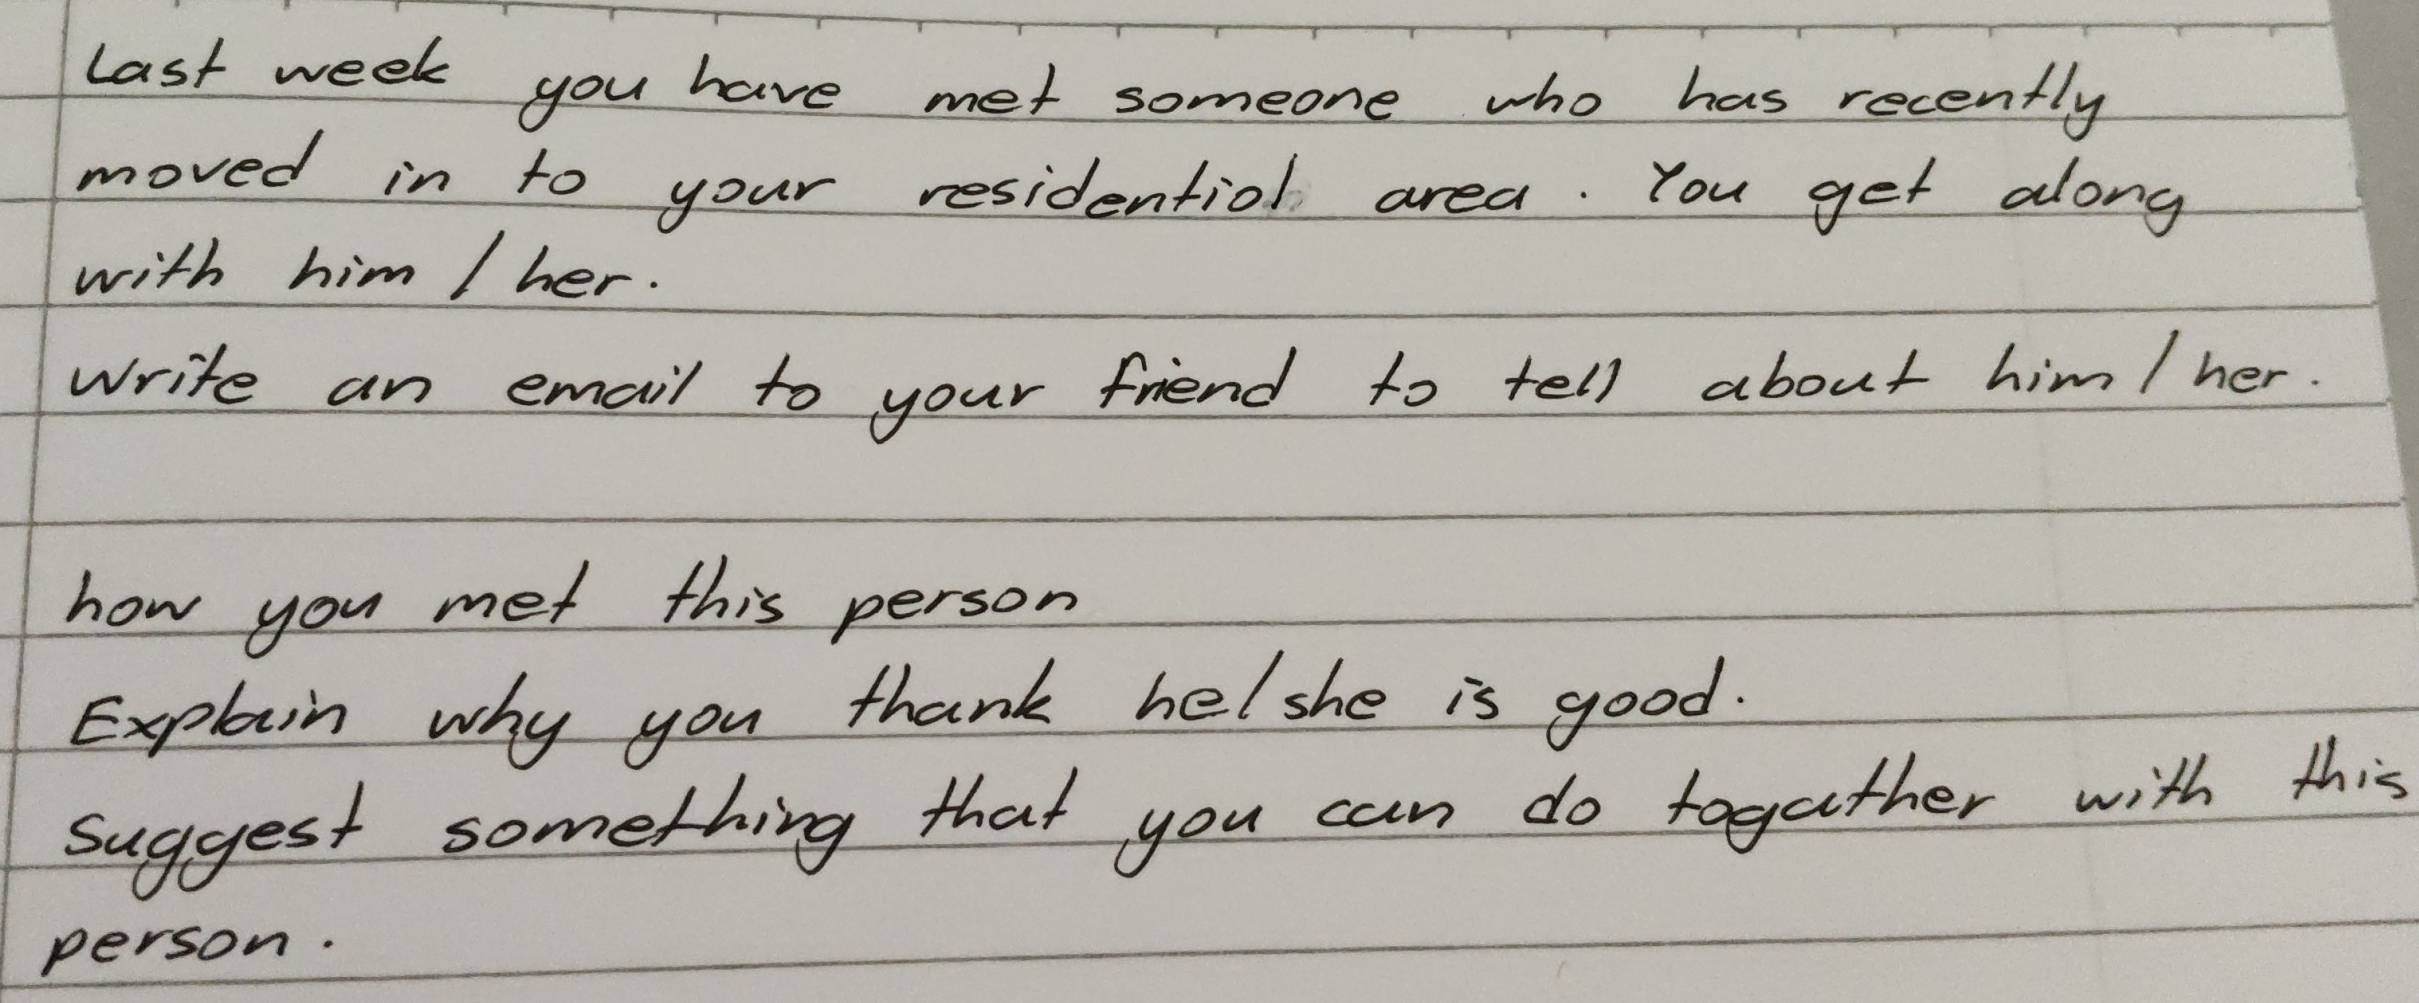 Last week you have met someone who has recently
moved in to your residential area. You get along
with him / her.
Write an email to your friend to tell about him / her.
how you met this person
Explain why you thank he/she is good.
Suggest something that you can do togather with this
person.